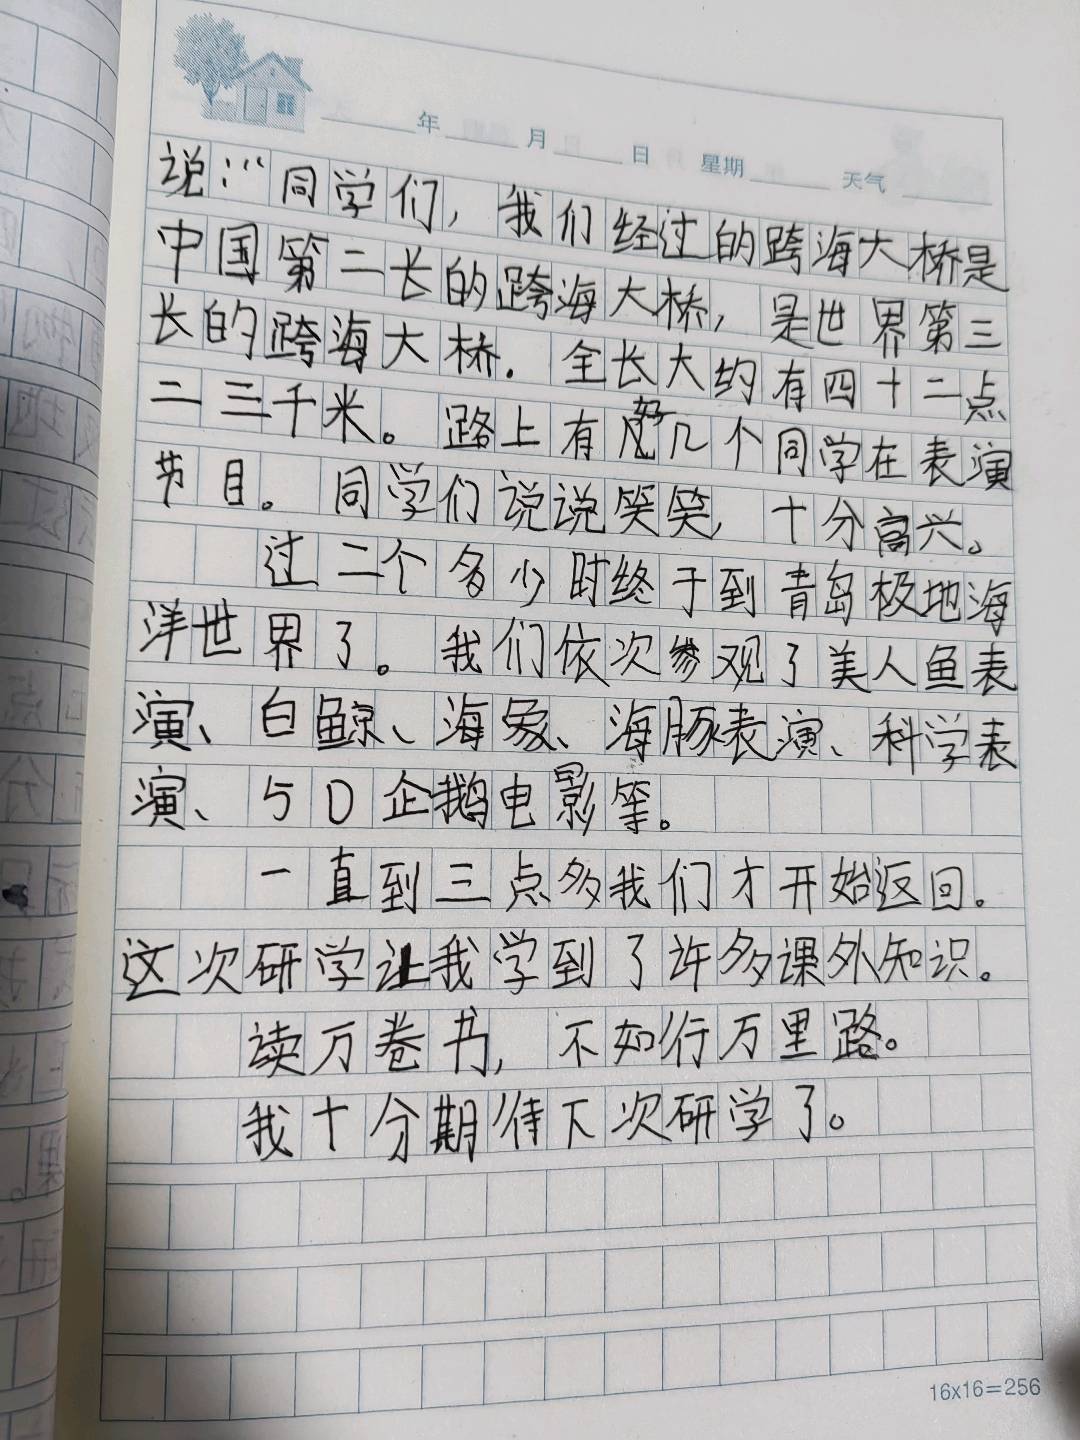 年 月 日 星期 天气
说:“同学们,我们经过的跨海大桥是
中国第二长的跨海大桥,是世界第三
长的跨海大桥.全长大约有四十二点
二三千米。路上有好几个同学在表演
节目。同学们说说笑笑,十分高兴。
过二个多少时终于到青岛极地海
洋世界了。我们依次参观了美人鱼表
演、白鲸、海象、海豚表演、科学表
演、5D企鹅电影等。
一直到三点多我们才开始返回.
这次研学让我学到了许多课外知识。
读万卷书,不如行万里路。
我十分期待下次研学了。
16x16=256